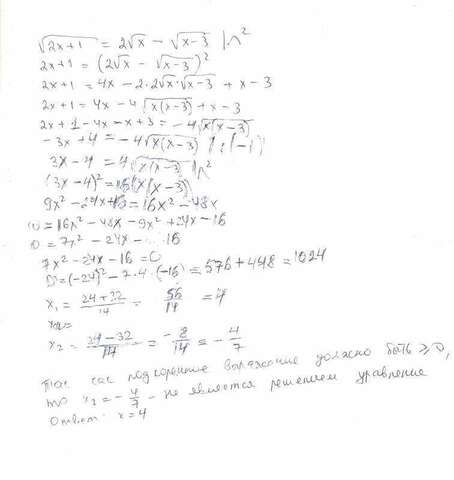 √(2x+1) = 2√x − √(x−3) |^2
2x+1 = (2√x − √(x−3))^2
2x+1 = 4x − 2·2√x·√(x−3) + x−3
2x+1 = 4x − 4√(x(x−3)) + x−3
2x+1−4x−x+3 = −4√(x(x−3))
−3x+4 = −4√(x(x−3)) | :(−1)
3x−4 = 4√(x(x−3)) |^2
(3x−4)^2 = 16(x(x−3))
9x^2 − 24x+16 = 16x^2 − 48x
0 = 16x^2 − 48x − 9x^2 + 24x − 16
0 = 7x^2 − 24x − 16
7x^2 − 24x − 16 = 0
D = (−24)^2 − 7·4·(−16) = 576 + 448 = 1024
x1 = (24+32)/14 = 56/14 = 4
x2 = (24−32)/14 = −8/14 = −4/7
Так как подкоренное выражение должно быть ≥0,
то x2 = −4/7 - не является решением уравнение
Ответ: x=4